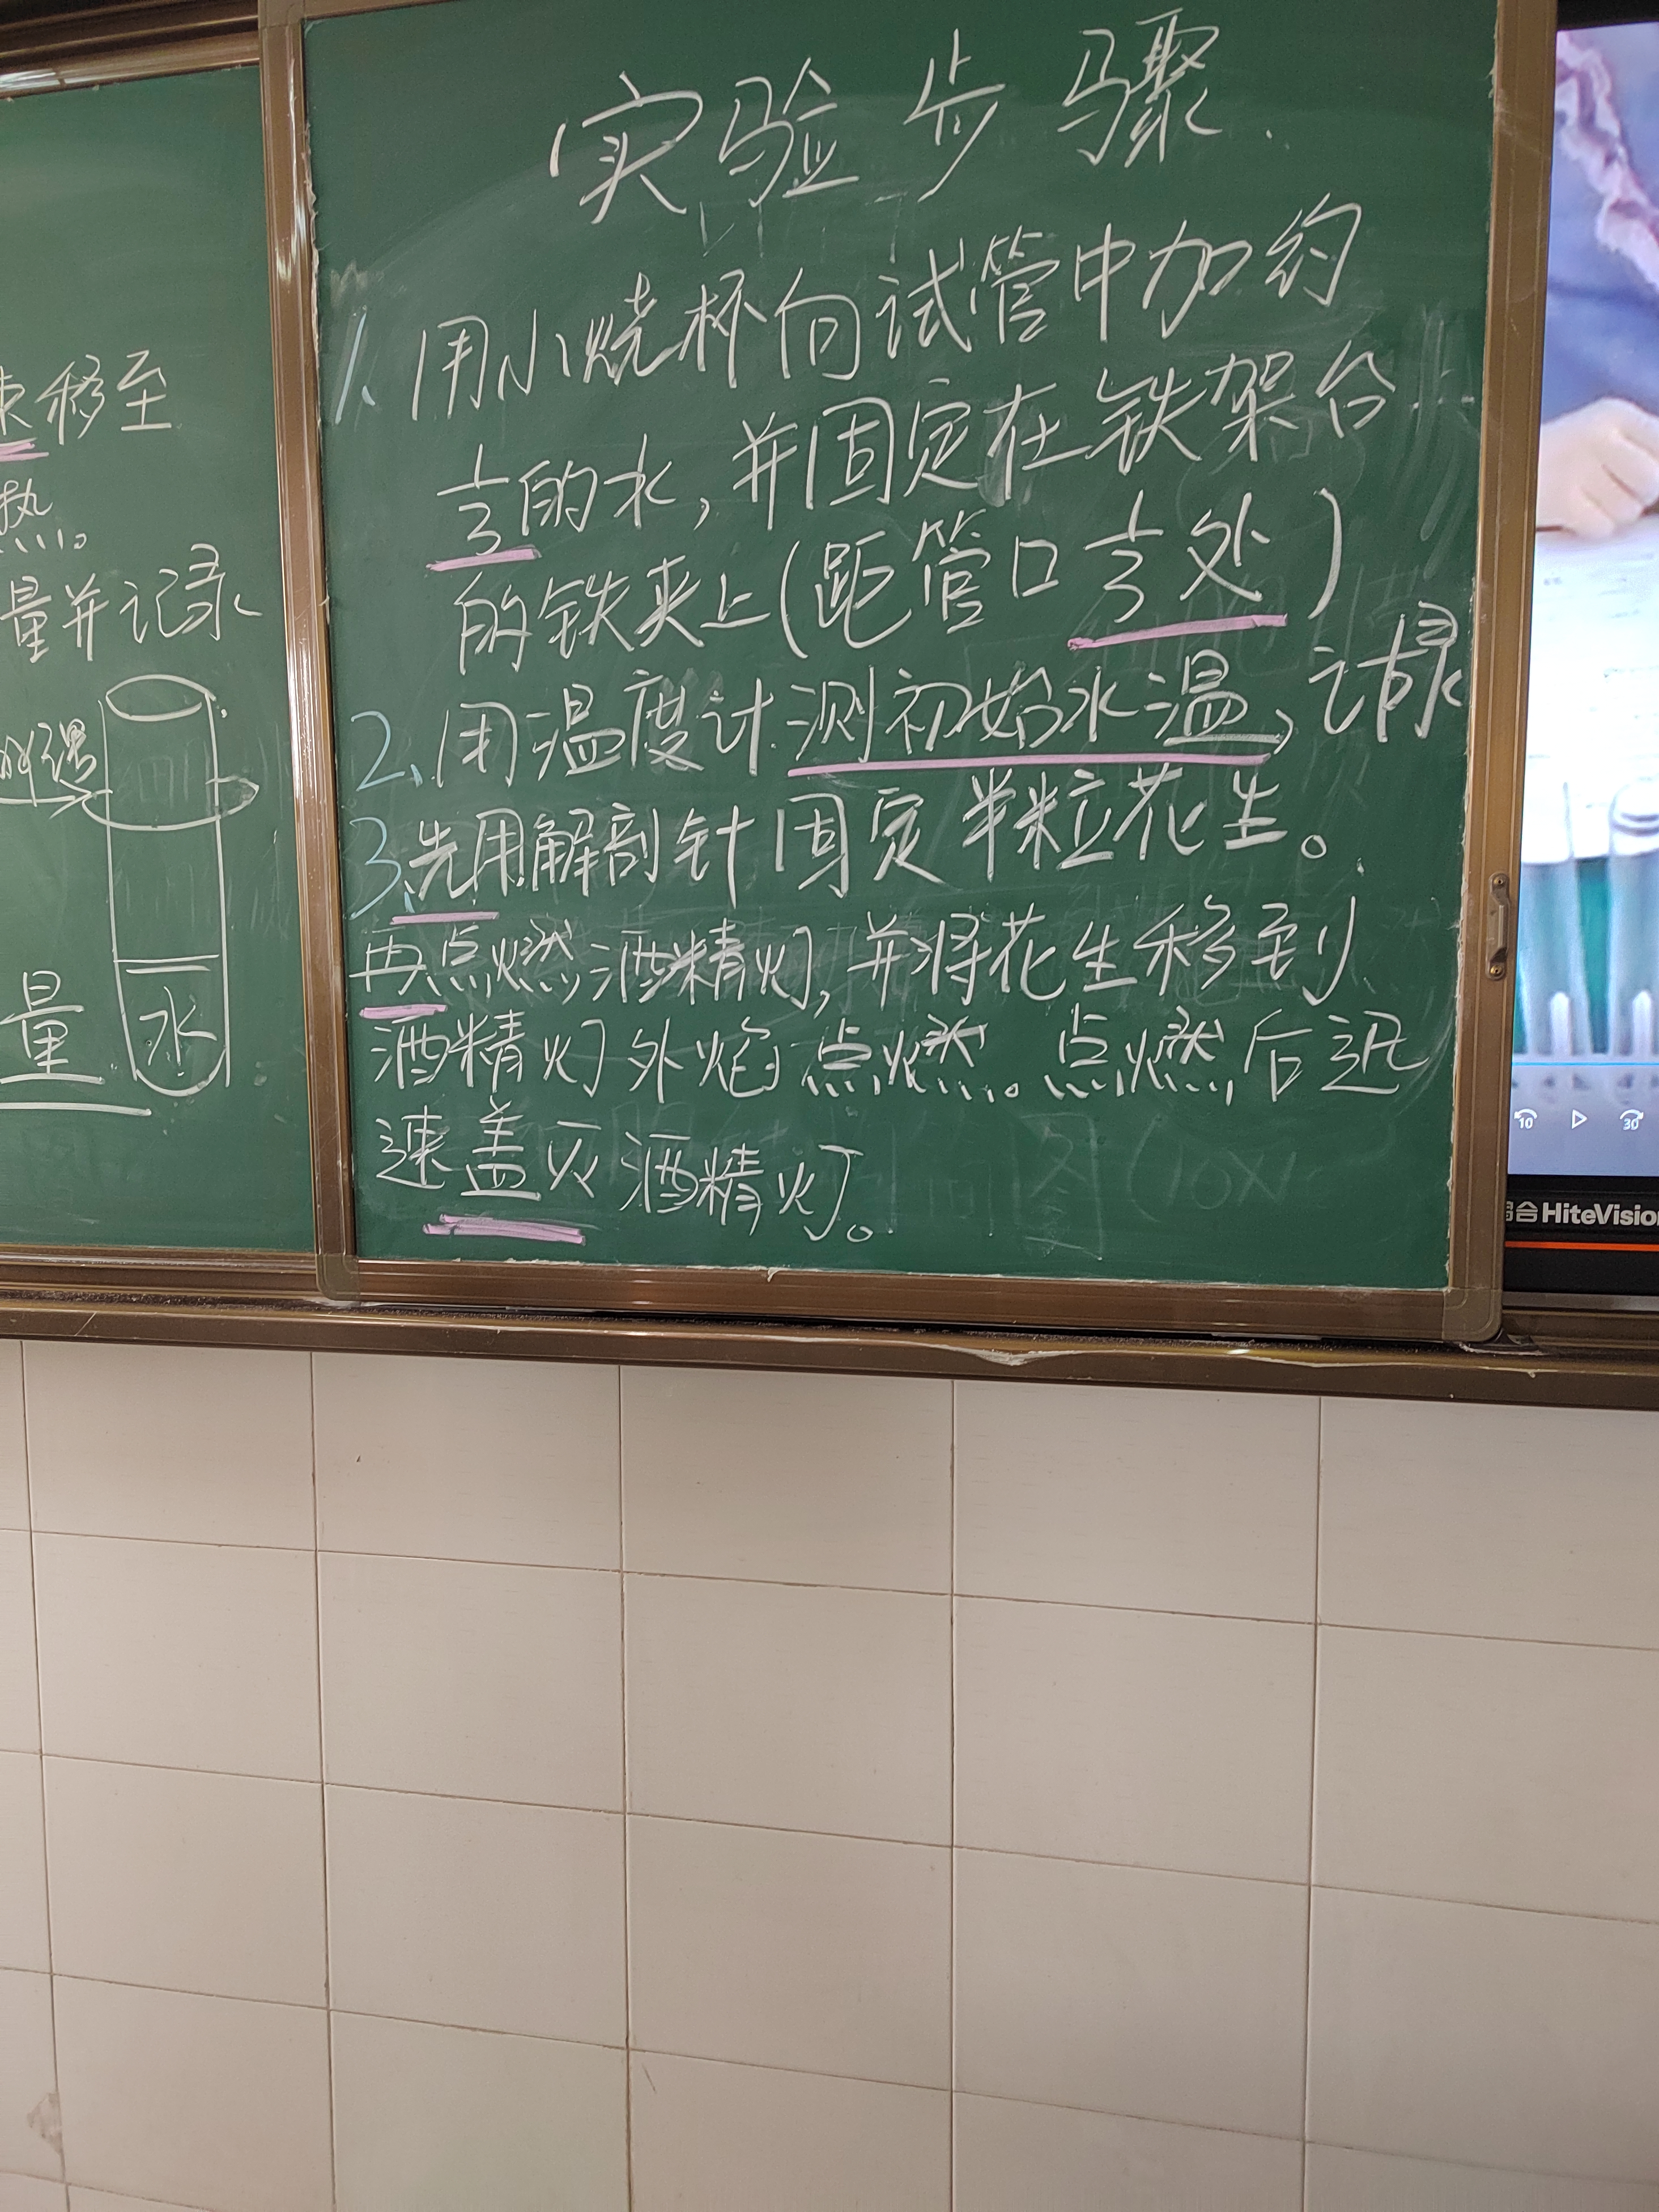 移至
热。
量并记录
量
水
实验步骤.
1、用小烧杯向试管中加约
1/3的水,并固定在铁架台
的铁夹上(距管口1/3处)
2、用温度计测初始水温,记录
3、先用解剖针固定半粒花生。
再点燃酒精灯,并将花生移到
酒精灯外焰点燃。点燃后迅
速盖灭酒精灯。
10
30
HiteVision